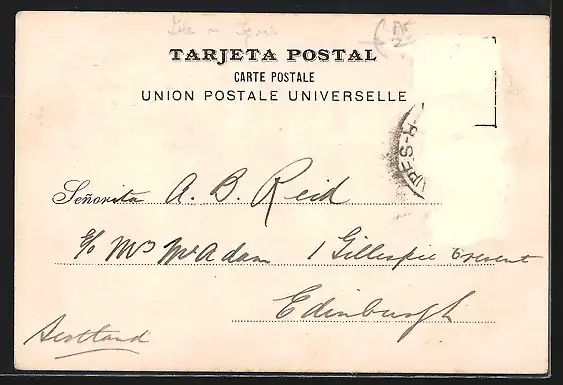 TARJETA POSTAL
CARTE POSTALE
UNION POSTALE UNIVERSELLE
Señorita A. B. Reid
c/o Mrs McAdam 1 Gillespie Cresent
Edinburgh
Scotland